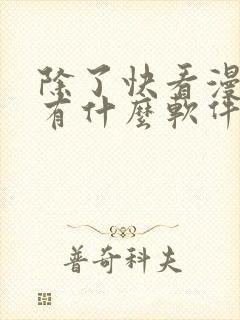 除了快看漫
有什麼軟件
普奇科夫